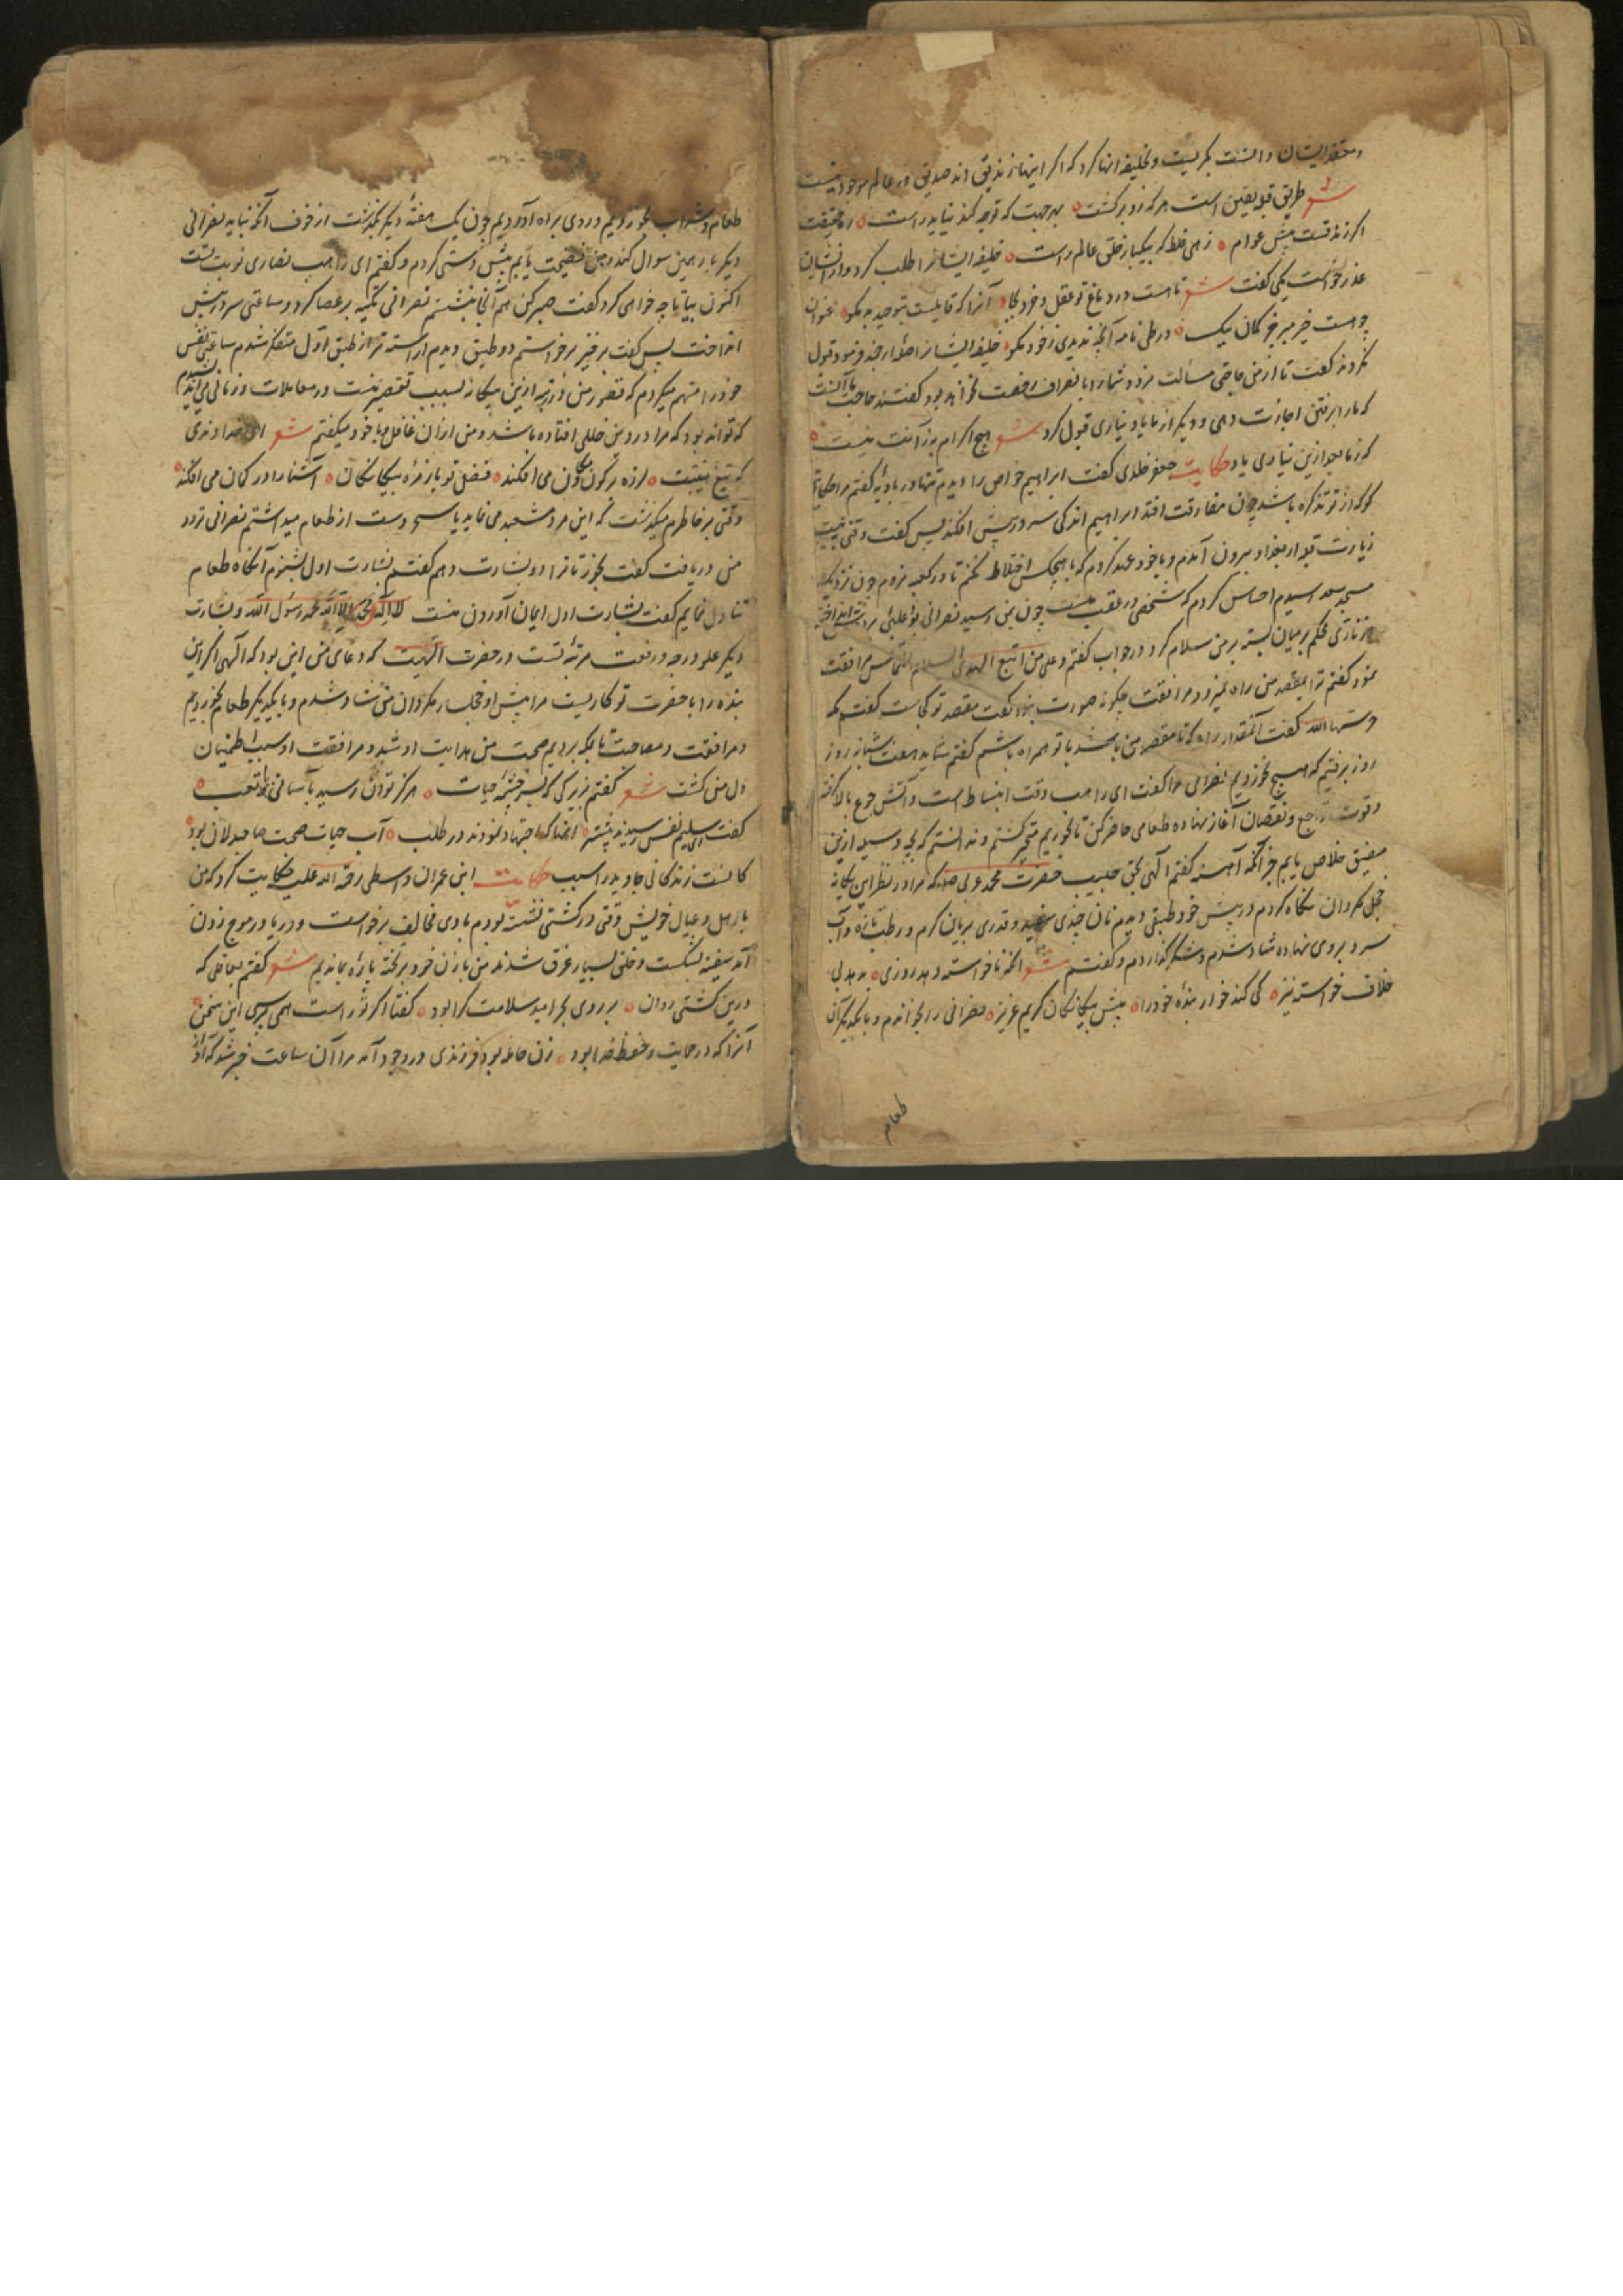 و معتقد ایشان دانست بگریست و بخلیفه انها کرد که اگر اینها زندیق اند صدیق در عالم موجود نیست
شعر طریق قویقین است هر که زو برگشت بهر جهت که توجه کند نیابد راست ره حقیقت
اگر زندقست پیش عوام زهی غلط که بیکبار خلق عالم راست خلیفه ایشانرا طلب کرد و از ایشان
عذر خواست یکی گفت شعر تا هست در دماغ تو عقل و خرد بجا آنرا که قابلیست بتوحید به مگو عنوان
چو هست خیر مبر خیر گمان نیک در طی نامه آنچه ندیدی ز خود مگو خلیفه ایشانرا اصله ارجمند فرمود قبول
نکردند گفت تا از من حاجتی مسألت نرود شمارا بانصراف رخصت نخواهد بود گفتند حاجت ما آنست
که ما را برفتن اجازت دهی و دیگر از ما یاد نیاری قبول کرد شعر هیچ اکرام به ز آنت نیست
که ز ما بعد ازین نیاری یاد حکایت جعفر خلدی گفت ابراهیم خواص را دیدم تنها در بادیه گفتم مرا حکایتی
گو که از تو تذکره باشد چون مفارقت افتد ابراهیم اندکی سر در پیش افکند پس گفت وقتی بنیت
زیارت قبور از بغداد بیرون آمدم و با خود عهد کردم که با هیچکس اختلاط نکنم تا در کعبه نروم چون نزدیک
مسجد سعد رسیدم احساس کردم که شخصی در عقب منست چون بمن رسید نصرانی بود عبائی بر دوش انداخته
و زناری محکم بر میان بسته بر من سلام کرد در جواب گفتم و علی من اتبع الهدی السلام التماس مرافقت
نمود گفتم ترا بمقصد من راه نبود مرافقت چگونه صورت بندد گفت مقصد تو کجاست گفتم مکه
حرسها الله گفت آنمقدار راه که تا مقصد من باشد با تو همراه باشم گفتم شاید هفت شبانروز
روز برفتیم که هیچ نخوردیم نصرانی مرا گفت ای راهب وقت انبساط است و آتش جوع بالا گرفته
و قوت تراجع و نقصان آغاز نهاده طعامی حاضر کن تا بخوریم متحیر گشتم و ندانستم که بچه وسیله ازین
مضیق خلاص یابم جز آنکه آهسته گفتم الهی بحق حبیب حضرت محمد عربی که مرا در نظر این بیگانه
خجل مگردان نگاه کردم در پیش خود طبقی دیدم نان چندی سفید و قدری بریان گرم و رطب تازه و آب
سرد بروی نهاده شاد شدم و شکر گذاردم و گفتم شعر آنکه ناخواسته دهد روزی ندهد بی
خلاف خواسته نیز کی کند خوار بنده خود را پیش بیگانگان کریم عزیز نصرانی را بخواندم و با یکدیگر آن
طعام
طعام و شراب بخوردیم و روی براه آوردیم چون یک هفتهٔ دیگر بگذشت از خوف آنکه نباید نصرانی
دیگر بار همین سوال کند و من فضیحت یابم پیش دستی کردم و گفتم ای راهب نصاری نوبت تست
اکنون بیا تا چه خواهی کرد گفت صبر کن هم آنجا بنشستم نصرانی تکیه بر عصا کرد و ساعتی سر در پیش
انداخت پس گفت برخیز برخواستم دو طبق دیدم اراسته تر از طبق اول متفکر شدم ساعتی نفس
خود را متهم میکردم که قصور من در رتبه ازین بیگانه بسبب تقصیر منست در معاملات و زمانی می اندیشیدم
که تواند بود که مرا در دین خللی افتاده باشد و من ازان غافل و با خود میگفتم شعر ای خداوندی
که تیغ هیبتت لرزه بر کون و مکان می افکند فضل تو باز زمرهٔ بیگانگان آشنا را در گمان می افکند
وقتی بر خاطرم میگذشت که این مرد شعبده می نماید یا سحر دست از طعام میداشتم نصرانی تردد
من دریافت گفت بخور تا ترا دو بشارت دهم گفتم بشارت اول بشنوم آنگاه طعام
تناول نمایم گفت بشارت اول ایمان آوردن منست لا اله الا الله محمد رسول الله و بشارت
دیگر علو درجه و رفعت مرتبهٔ تست در حضرت الهیت که دعای من این بود که الهی اگر این
بنده را با حضرت تو کاریست مرا پیش او خجل مگردان من شاد شدم و با یکدیگر طعام بخوردیم
و مرافقت و مصاحبت تا بمکه بردیم صحبت من هدایت او شد و مرافقت او سبب اطمینان
دل من گشت شعر گفتم بزیرکی که بسرچشمهٔ حیات هرگز توان رسید بآسانی تعب
گفت ای سلیم نفس رسیدند پیشتر آنها که اجتهاد نمودند در طلب آب حیات صحبت صاحبدلان بود
کانست زندگانی جاوید را سبب حکایت ابن عمران واسطی رحمة الله علیه حکایت کرد که من
با اهل و عیال خویش وقتی در کشتی نشسته بودم بادی مخالف برخواست و دریا در موج زدن
آمد سفینه بشکست و خلقی بسیار غرق شدند من با زن خود بر تخته پارهٔ بماندیم شعر گفتم بعاقلی که
درین کشتی روان بر روی بحر امید سلامت کرا بود گفتا اگر تو راست همی پرسی این سخن
آنرا که در حمایت و حفظ خدا بود زن حامله بود فرزندی در وجود آمد مرا آن ساعت خبر شد که آواز